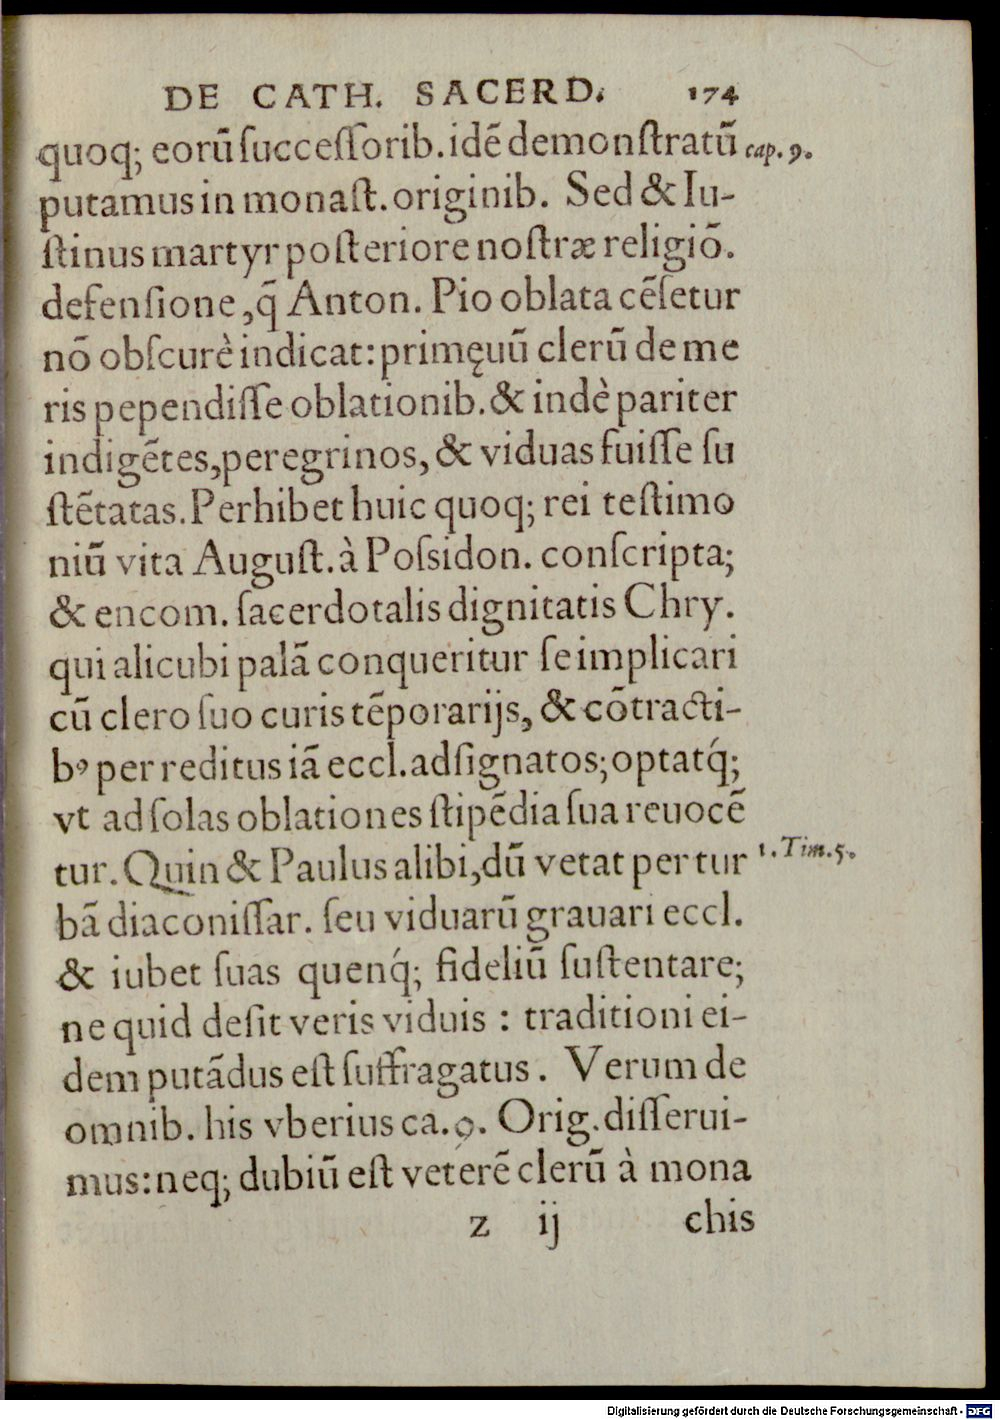 DE CATH. SACERD. 174
quoq; eorũ ſucceſſorib. idẽ demonſtratũ cap. 9.
putamus in monaſt. originib. Sed & Iu-
ſtinus martyr poſteriore noſtræ religiõ.
defenſione, q̃ Anton. Pio oblata cẽſetur
nõ obſcurè indicat: primęuũ clerũ de me
ris pependiſſe oblationib. & indè pariter
indigẽtes, peregrinos, & viduas fuiſſe ſu
ſtẽtatas. Perhibet huic quoq; rei teſtimo
niũ vita Auguſt. à Poſsidon. conſcripta;
& encom. ſacerdotalis dignitatis Chry.
qui alicubi palã conqueritur ſe implicari
cũ clero ſuo curis tẽporarijs, & cõtracti-
bꝰ per reditus iã eccl. adſignatos; optatq́;
vt ad ſolas oblationes ſtipẽdia ſua reuocẽ
tur. Quin & Paulus alibi, dũ vetat per tur 1. Tim. 5.
bã diaconiſſar. ſeu viduarũ grauari eccl.
& iubet ſuas quenq́; fideliũ ſuſtentare;
ne quid deſit veris viduis : traditioni ei-
dem putãdus eſt ſuffragatus. Verum de
omnib. his vberius ca. 9. Orig. diſſerui-
mus: neq; dubiũ eſt veterẽ clerũ à mona
z ij chis
Digitalisierung gefördert durch die Deutsche Forschungsgemeinschaft - DFG